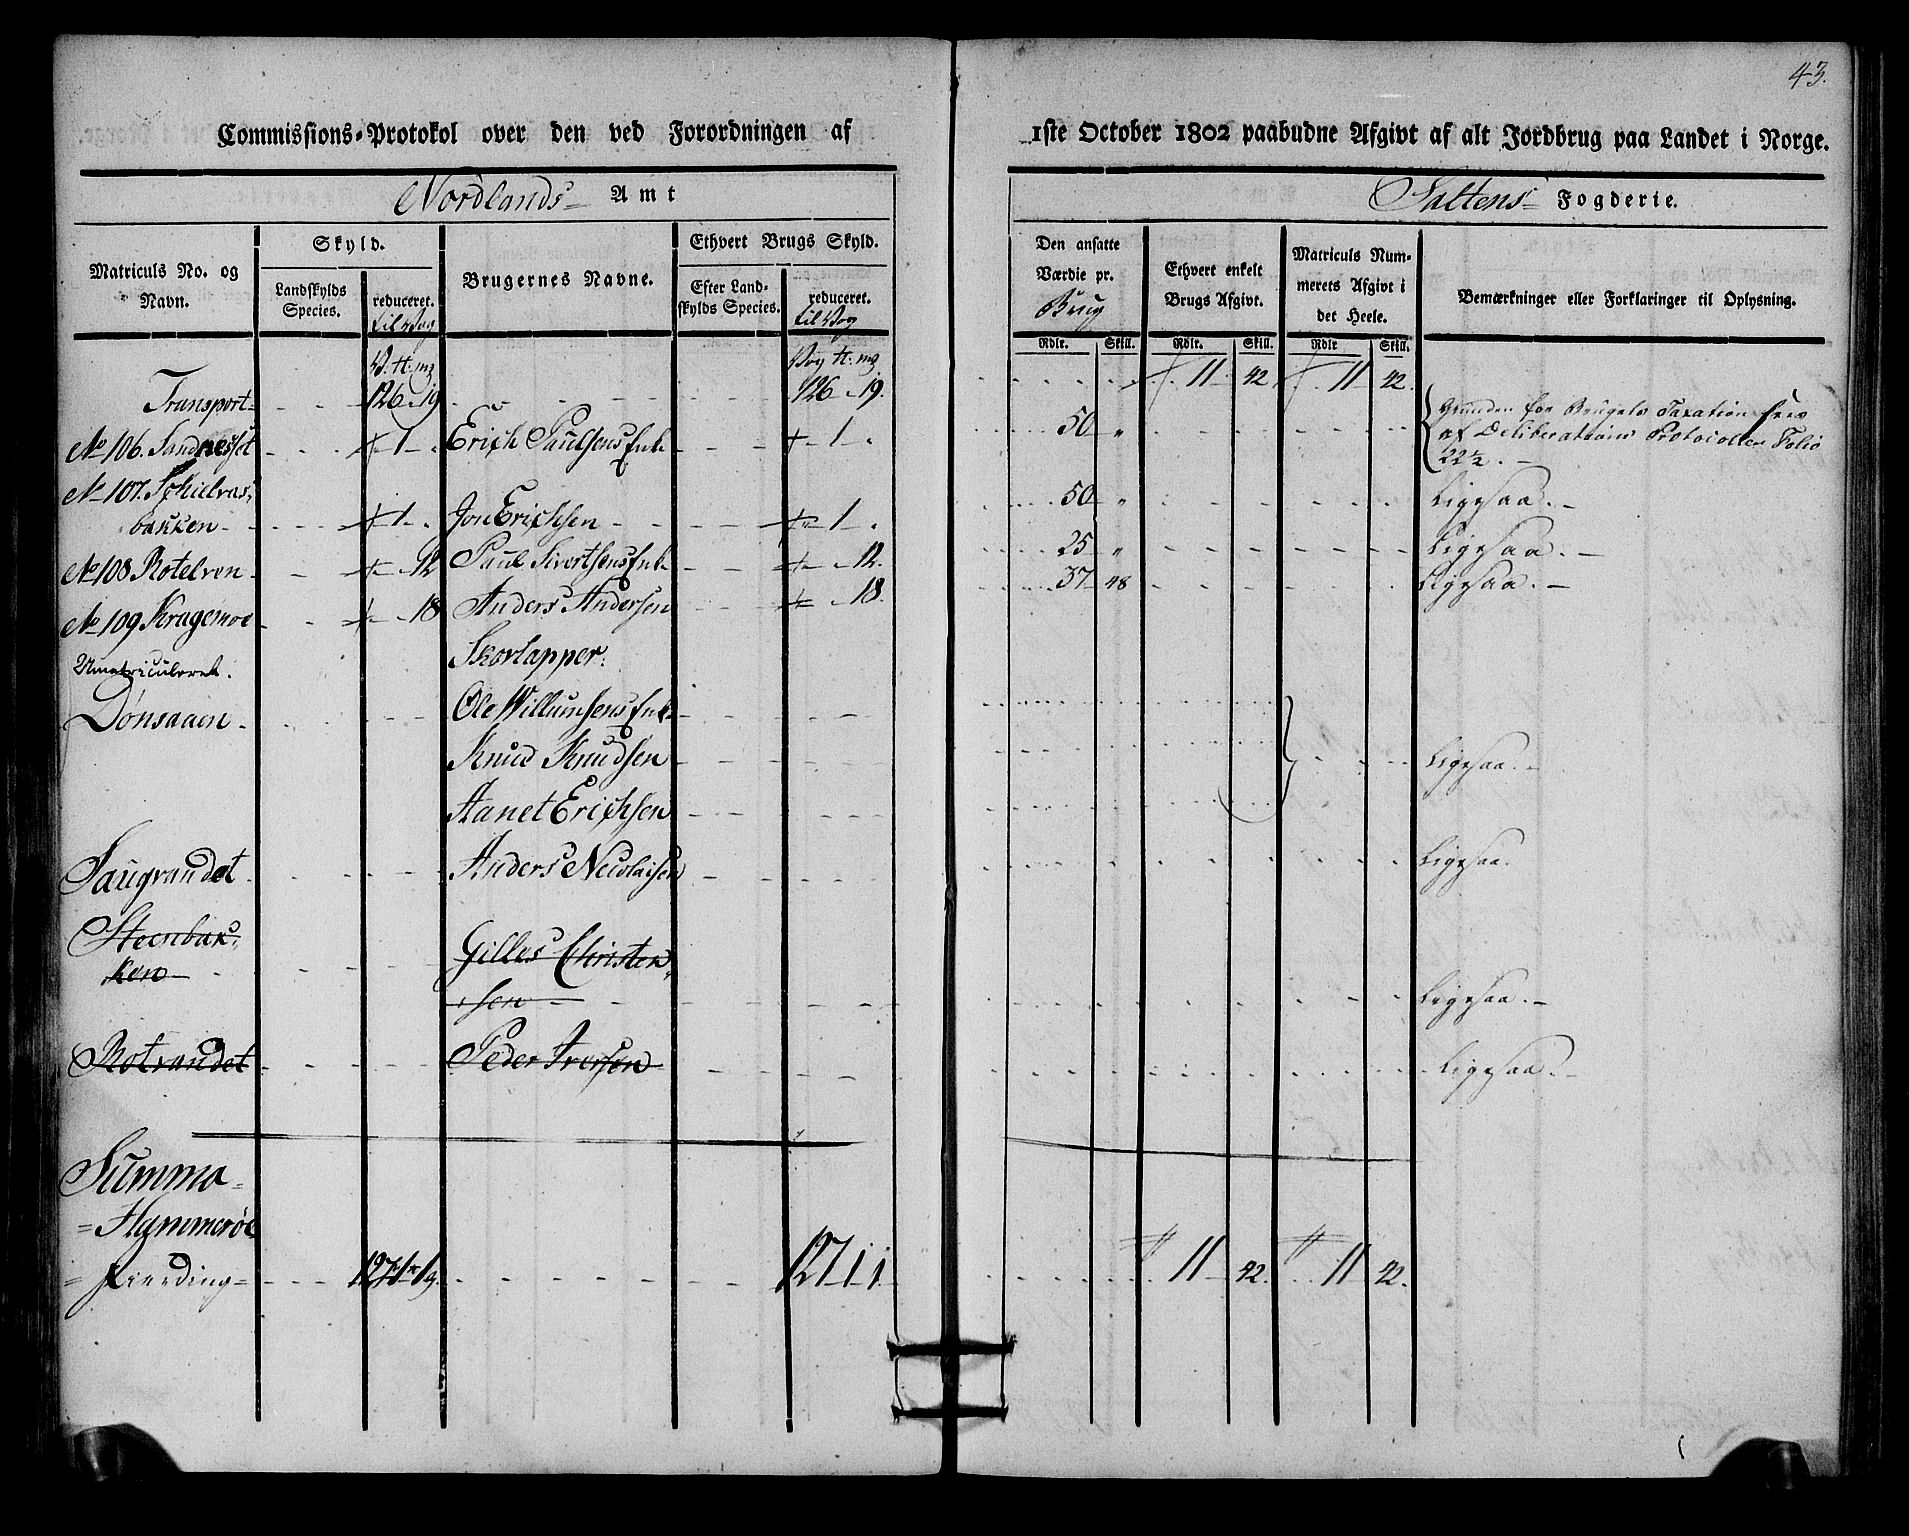 43.
Commissions-Protokol over den ved Forordningen af 1ste October 1802 paabudne Afgivt af alt Jordbrug paa Landet i Norge.
Nordlands Amt
Saltens Fogderie.
Matriculs No. og Navn.
Skyld.
Landskylds Species.
reduceret. til Vog
Brugernes Navne.
Ethvert Brugs Skyld.
Efter Landskylds Species.
reduceret. til Vog
Den ansatte Værdie pr. Brug
Ethvert enkelt Brugs Afgivt.
Matriculs Nummerets Afgivt i det Heele.
Bemærkninger eller Forklaringer til Oplysning.
Rdlr. Skill. Rdlr. Skill. Rdlr Skill.
V. tt. mg Vog tt. mg
Transport 126 " 19 126 " 19. 11 42 11 42.
No 106. Sandnesset 1 " Erich Paulsens Enk. 1 " 50 " Grunden for Brugets Taxation sees
af Deliberations Protocollen Folio
22½.
No 107. Schielvas
bakken 1 " Jon Erichsen 1 " 50 " Ligesaa.
No 108 Rotelven 12 Paul Sivertsens Enk. 12. 25 " Ligesaa.
No 109 Kragemoe 18 Anders Andersen 18. 37 48 Ligesaa.
Umatriculeret. Skovlapper.
Dønsaaen Ole Willumsens Enk.
Knud Knudsen Ligesaa.
Aanet Erichsen
Saugrandet Anders Nicolaisen Ligesaa.
Steenbak-
ken Gilles Christen-
sen Ligesaa.
Rotrandet Peder Iversen Ligesaa.
Summa
Hammerøe
Fierding 127 1 19. 127 1 1 11 42. 11 42.